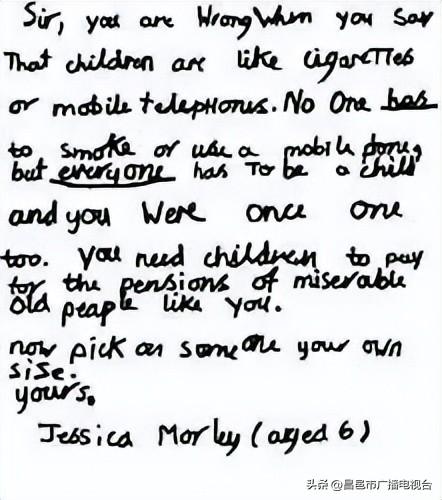 Sir, you are Wrong When you say
That children are like cigarettes
or mobile telephones. No One has
to smoke or use a mobile fone,
but everyone has To be a child
and you Were once one
too. You need children to pay
for the pensions of miserable
old peaple like you.
now pick on someone your own
sise.
yours.
Jessica Morley (aged 6)
头条 @昌邑市广播电视台